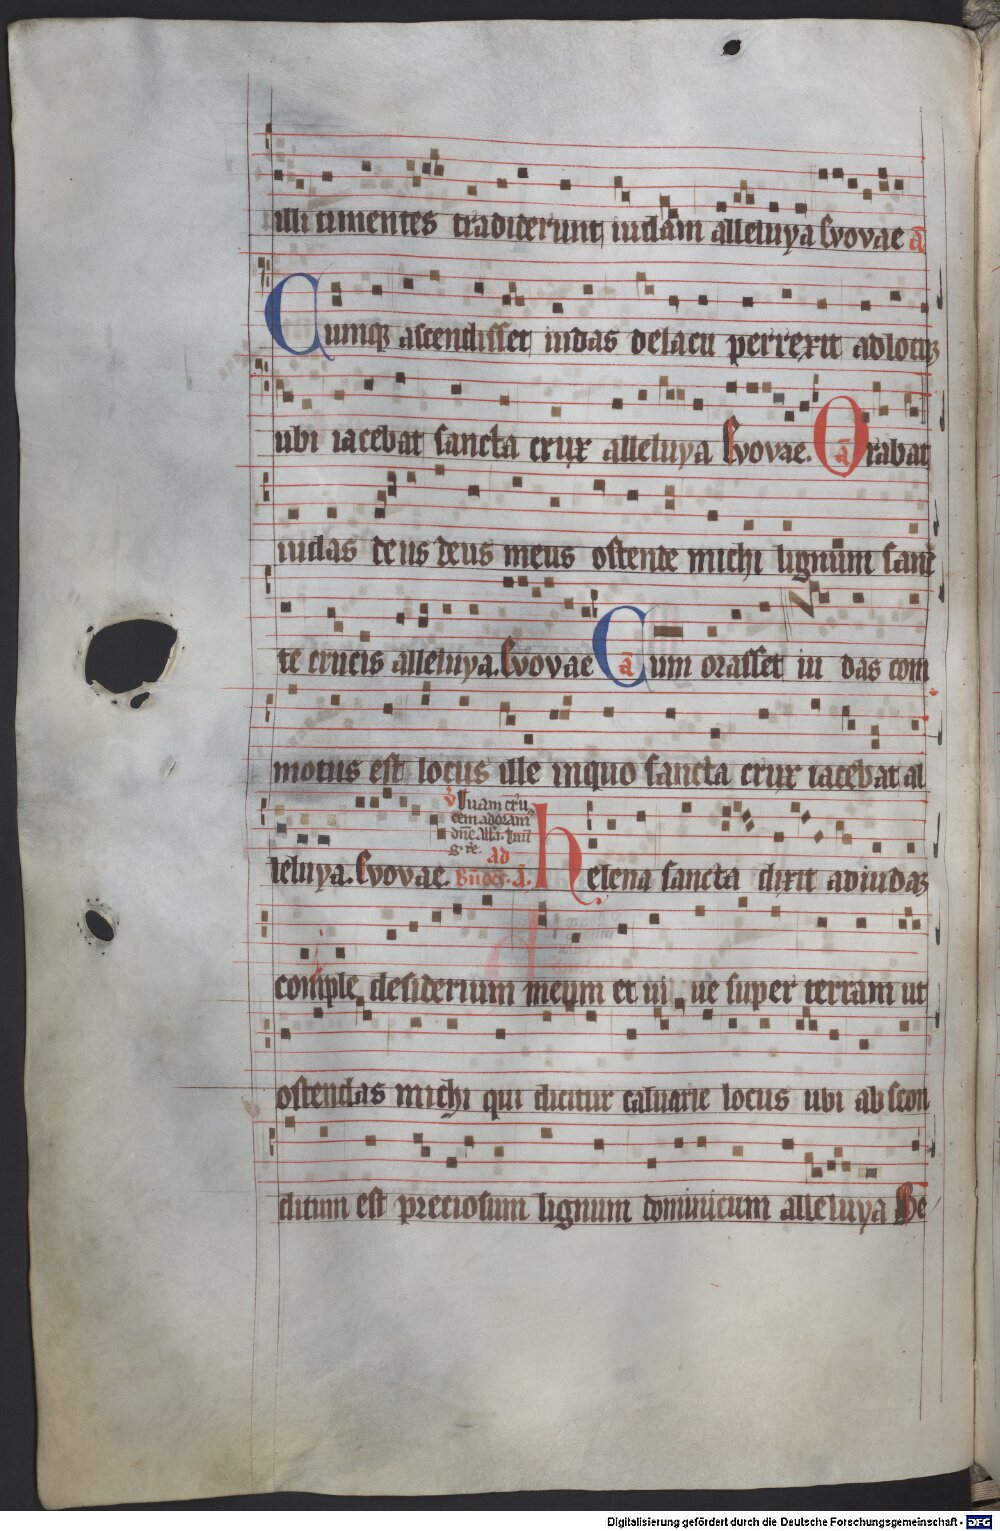 illi timentes tradiderunt iudam alleluya Evovae a̅
Cumq; ascendisset iudas delacu perrexit adlocu̅
ubi iacebat sancta crux alleluya Evovae. a̅ Orabat
iudas deus deus meus ostende michi lignum sanc
te crucis alleluya. Evovae a̅ Cum orasset iu das com
motus est locus ille inquo sancta crux iacebat al
leluya. Evovae.
cem adoram
ad
helena sancta dixit adiudam
comple desiderium meum et ui ue super terram ut
ostendas michi qui dicitur caluarie locus ubi abscon
ditum est preciosum lignum dominicum alleluya Be
Digitalisierung gefördert durch die Deutsche Forschungsgemeinschaft - DFG